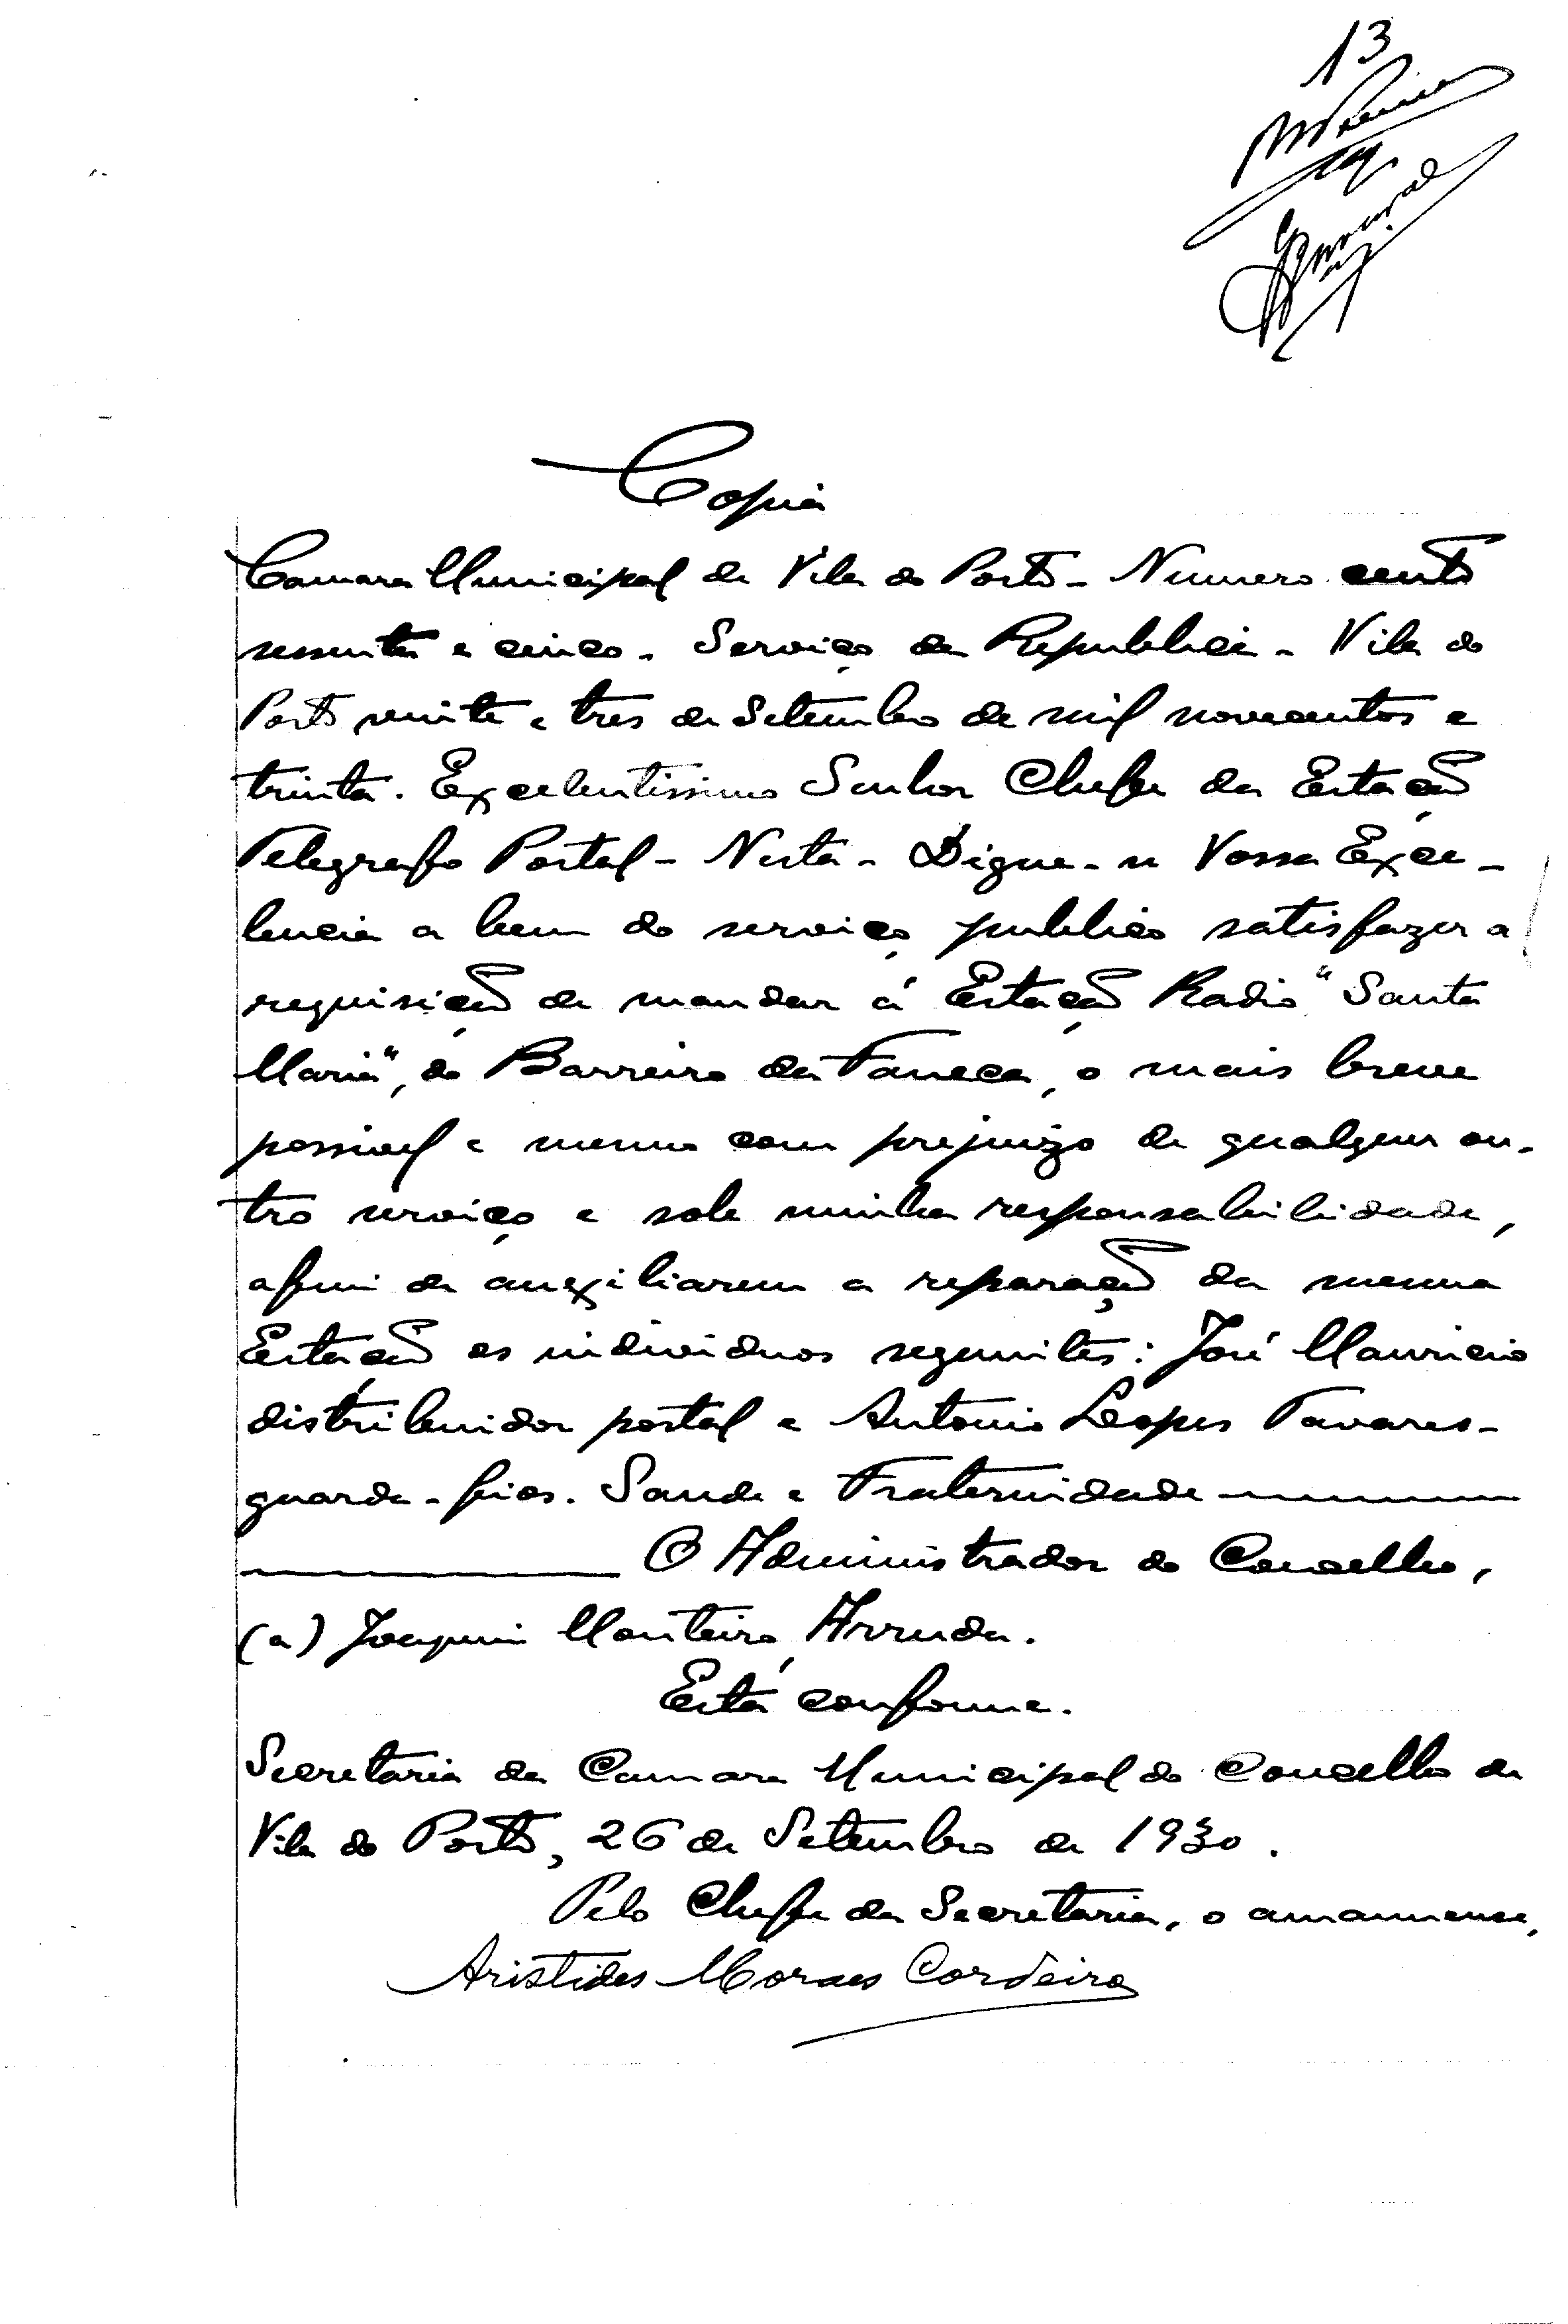 13
Copia
Camara Municipal de Vila do Porto - Numero cento
sessenta e cinco - Serviço da Republica - Vila do
Porto vinte e tres de Setembro de mil novecentos e
trinta. Excelentissimo Senhor Chefe da Estação
Telegrafo Postal - Nesta - Digne-se Vossa Exce-
lencia a bem do serviço publico satisfazer a
requisição de mandar á Estação Radio "Santa
Maria", do Barreiro da Faneca, o mais breve
possivel e mesmo com prejuizo de qualquer ou-
tro serviço e sob minha responsabilidade,
afim de auxiliarem a reparação da mesma
Estação os individuos seguintes: José Mauricio
distribuidor postal e Antonio Lopes Tavares -
guarda-fios. Saude e Fraternidade
O Administrador do Concelho,
(a) Joaquim Monteiro Arruda.
Está conforme.
Secretaria da Camara Municipal do Concelho de
Vila do Porto, 26 de Setembro de 1930.
Pelo Chefe da Secretaria, o amanuense,
Aristides Moraes Cordeiro